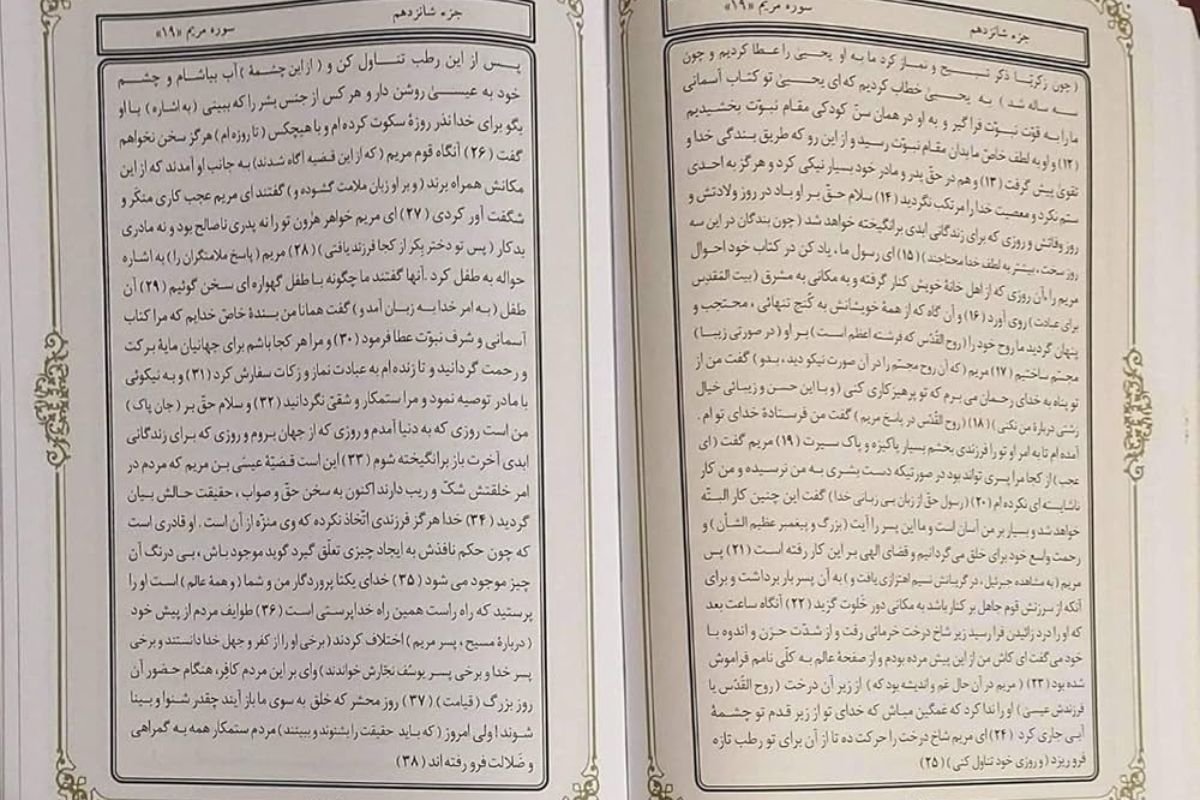 جزء شانزدهم
سوره مریم «۱۹»
( چون زکریّا ذکر تسبیح و نماز کرد ما به او یحیی را عطا کردیم و چون
سه ساله شد ) به یحیی خطاب کردیم که ای یحیی تو کتاب آسمانی
ما را به قوّت نبوّت فرا گیر و به او در همان سنّ کودکی مقام نبوّت بخشیدیم
(۱۲) و او به لطف خاصّ ما بدان مقام نبوّت رسید و از این رو که طریق بندگی خدا و
تقوی پیش گرفت (۱۳) و هم در حقّ پدر و مادر خود بسیار نیکی کرد و هرگز به احدی
ستم نکرد و معصیت خدا را مرتکب نگردید (۱۴) سلام حقّ بر او باد در روز ولادتش و
روز وفاتش و روزی که برای زندگانی ابدی برانگیخته خواهد شد ( چون بندگان در این سه
روز سخت ، بیشتر به لطف خدا محتاجند ) (۱۵) ای رسول ما ، یاد کن در کتاب خود احوال
مریم را ، آن روزی که از اهل خانهٔ خویش کنار گرفته و به مکانی به مشرق ( بیت المَقدِس
برای عبادت ) روی آورد (۱۶) و آن گاه که از همهٔ خویشانش به کُنج تنهائی ، محتجب و
پنهان گردید ما روح خود را ( روح القُدُس که فرشته اعظم است ) بر او ( در صورتی زیبا )
مجسّم ساختیم (۱۷) مریم ( که آن روح مجسّم را در آن صورت نیکو دید ، بدو ) گفت من از
تو پناه به خدای رحمان می برم که تو پرهیزکاری کنی ( و با این حسن و زیبائی خیال
زشتی دربارهٔ من نکنی ) (۱۸) ( روح القُدُس در پاسخ مریم ) گفت من فرستادهٔ خدای تو ام .
آمده ام تا به امر او تو را فرزندی بخشم بسیار پاکیزه و پاک سیرت (۱۹) مریم گفت ( ای
عجب ) از کجا مرا پسری تواند بود در صورتیکه دست بشری به من نرسیده و من کار
ناشایسته ای نکرده ام (۲۰) ( رسول حقّ از زبان بی زبانی خدا ) گفت این چنین کار البتّه
خواهد شد و بسیار بر من آسان است و ما این پسر را آیت ( بزرگ و پیغمبر عظیم الشأن ) و
رحمت واسع خود برای خلق می گردانیم و قضای الهی بر این کار رفته است (۲۱) پس
مریم ( به مشاهده جبرئیل ، در گریبانش نسیم اهتزازی یافت و ) به آن پسر بار برداشت و برای
آنکه از سرزنش قوم جاهل بر کنار باشد به مکانی دور خَلوت گزید (۲۲) آنگاه ساعت بعد
که او را درد زائیدن فرا رسید زیر شاخ درخت خرمائی رفت و از شدّت حزن و اندوه با
خود می گفت ای کاش من از این پیش مرده بودم و از صفحهٔ عالم به کلّی نامم فراموش
شده بود (۲۳) ( مریم در آن حال غم و اندیشه بود که ) از زیر آن درخت ( روح القُدُس یا
فرزندش عیسی ) او را ندا کرد که غمگین مباش که خدای تو از زیر قدم تو چشمهٔ
آبی جاری کرد (۲۴) ای مریم شاخ درخت را حرکت ده تا از آن برای تو رطب تازه
فرو ریزد ( و روزی خود تناول کنی ) (۲۵)
جزء شانزدهم
سوره مریم «۱۹»
پس از این رطب تناول کن و ( از این چشمهٔ ) آب بیاشام و چشم
خود به عیسی روشن دار و هر کس از جنس بشر را که ببینی ( به اشاره ) با او
بگو برای خدا نذر روزهٔ سکوت کرده ام و با هیچکس ( تا روزه ام ) هرگز سخن نخواهم
گفت (۲۶) آنگاه قوم مریم ( که از این قضیه آگاه شدند ) به جانب او آمدند که از این
مکانش همراه برند ( و بر او زبان ملامت گشوده و ) گفتند ای مریم عجب کاری منکَر و
شگفت آور کردی (۲۷) ای مریم خواهر هرُون تو را نه پدری ناصالح بود و نه مادری
بدکار ( پس تو دختر بِکر از کجا فرزند یافتی ) (۲۸) مریم ( پاسخ ملامتگران را ) به اشاره
حواله به طفل کرد . آنها گفتند ما چگونه با طفل گهواره ای سخن گوئیم (۲۹) آن
طفل ( به امر خدا به زبان آمد و ) گفت همانا من بندهٔ خاصّ خدایم که مرا کتاب
آسمانی و شرف نبوّت عطا فرمود (۳۰) و مرا هر کجا باشم برای جهانیان مایهٔ برکت
و رحمت گردانید و تا زنده ام به عبادت نماز و زکات سفارش کرد (۳۱) و به نیکوئی
با مادر توصیه نمود و مرا ستمکار و شقیّ نگردانید (۳۲) و سلام حقّ بر ( جان پاک )
من است روزی که به دنیا آمدم و روزی که از جهان بروم و روزی که برای زندگانی
ابدی آخرت باز برانگیخته شوم (۳۳) این است قضیّهٔ عیسَی بن مریم که مردم در
امر خلقتش شکّ و ریب دارند اکنون به سخن حقّ و صواب ، حقیقت حالش بیان
گردید (۳۴) خدا هرگز فرزندی اتّخاذ نکرده که وی منزّه از آن است . او قادری است
که چون حکم نافذش به ایجاد چیزی تعلّق گیرد گوید موجود باش ، بی درنگ آن
چیز موجود می شود (۳۵) خدای یکتا پروردگار من و شما ( و همهٔ عالم ) است او را
پرستید که راه راست همین راه خداپرستی است (۳۶) طوایف مردم از پیش خود
( دربارهٔ مسیح ، پسر مریم ) اختلاف کردند ( برخی او را از کفر و جهل خدا دانستند و برخی
پسر خدا و برخی پسر یوسُف نجّارش خواندند ) وای بر این مردم کافِر، هنگام حضور آن
روز بزرگ ( قیامت ) (۳۷) روز محشر که خلق به سوی ما باز آیند چقدر شنوا و بینا
شوند ! ولی امروز ( که باید حقیقت را بشنوند و ببینند ) مردم ستمکار همه به گمراهی
و ضَلالت فرو رفته اند (۳۸)